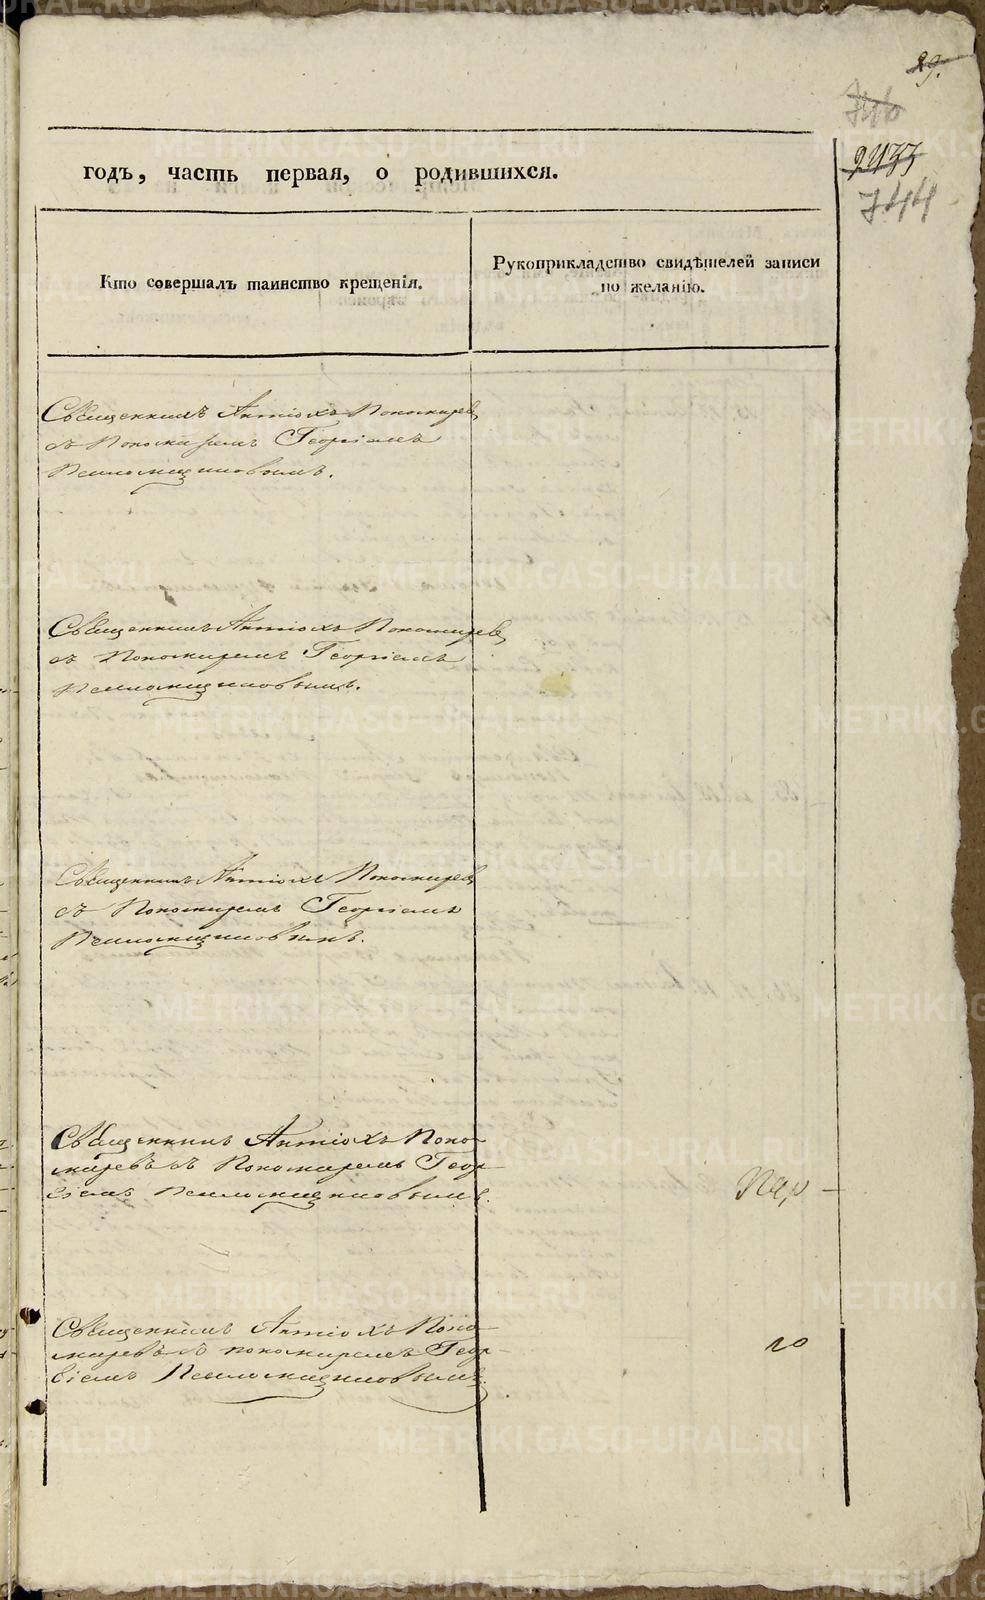 29.
746
2433
744
годъ, часть первая, о родившихся.
Кто совершалъ таинство крещенія.
Рукоприкладство свидѣтелей записи
по желанію.
Священникъ Антіохъ Пономаревъ
съ Пономаремъ Георгіемъ
Священникъ Антіохъ Пономаревъ
съ Пономаремъ Георгіемъ
Священникъ Антіохъ Пономаревъ
съ Пономаремъ Георгіемъ
Священникъ Антіохъ Поно-
маревъ съ Пономаремъ Геор-
гіемъ
Священникъ Антіохъ Поно-
маревъ съ пономаремъ Геор-
гіемъ
METRIKI.GASO-URAL.RU